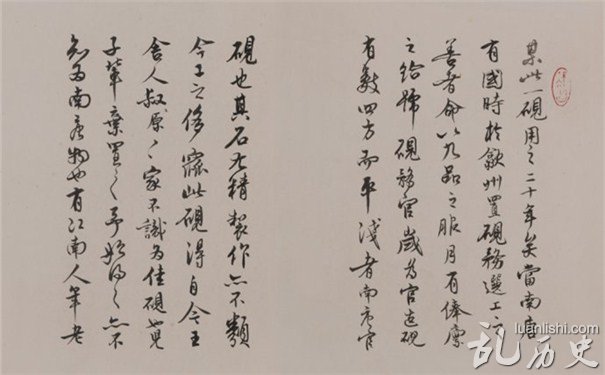 某此一硯用之二十年矣當南唐
有國時於歙州置硯務選工之
善者命以九品之服月有俸廩
之給號硯務官歲為官造硯
有數四方而平淺者南唐官
硯也其石尤精製作亦不類
今工之侈窳此硯得自今王
舍人叔原〻家不識為佳硯也兒
子輩棄置之予始得之亦不
知為南唐物也有江南人年老
luanlishi.com
乱历史